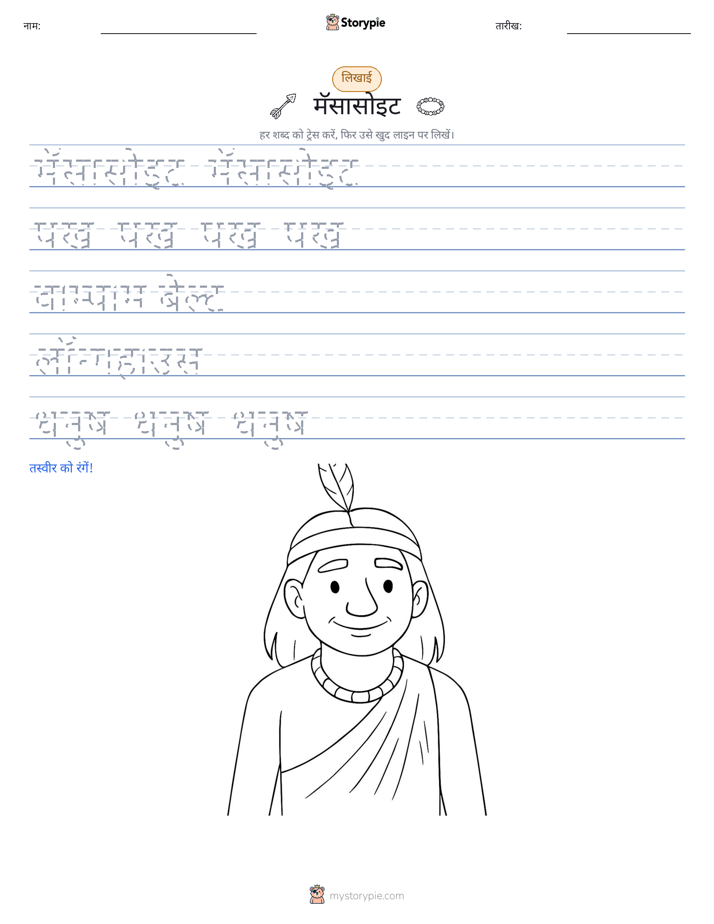 नाम:
Storypie
तारीख:
लिखाई
मॅसासोइट
हर शब्द को ट्रेस करें, फिर उसे खुद लाइन पर लिखें।
मॅसासोइट मॅसासोइट
पंख पंख पंख पंख
वाम्पाम बेल्ट
लॉन्गहाउस
धनुष धनुष धनुष
तस्वीर को रंगें!
mystorypie.com